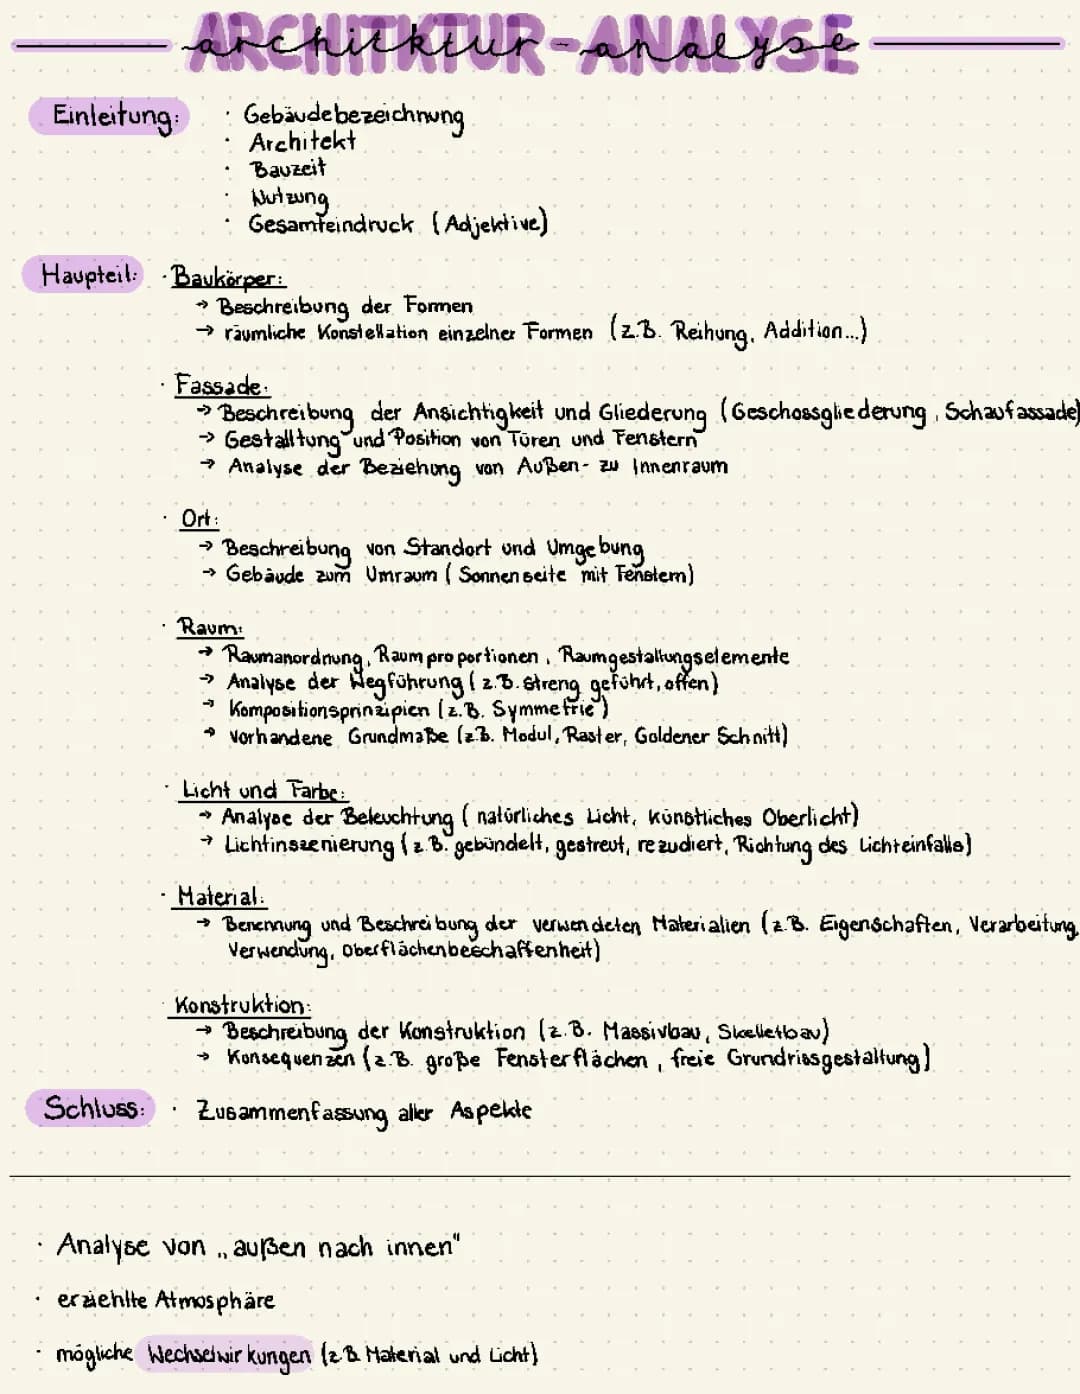 ARCHITKTUR-ANALYSE
architktur-analyse
Einleitung:
· Gebäudebezeichnung
· Architekt
· Bauzeit
· Nutzung
· Gesamteindruck (Adjektive)
Haupteil: · Baukörper:
→ Beschreibung der Formen
→ räumliche Konstellation einzelner Formen (z.B. Reihung, Addition...)
· Fassade:
→ Beschreibung der Ansichtigkeit und Gliederung (Geschossgliederung, Schaufassade)
→ Gestalltung und Position von Türen und Fenstern
→ Analyse der Beziehung von Außen- zu Innenraum
· Ort:
→ Beschreibung von Standort und Umgebung
→ Gebäude zum Umraum (Sonnenseite mit Fenstern)
· Raum:
→ Raumanordnung, Raumproportionen, Raumgestaltungselemente
→ Analyse der Wegführung (z.B. streng geführt, offen)
→ Kompositionsprinzipien (z.B. Symmetrie)
→ vorhandene Grundmaße (z.B. Modul, Raster, Goldener Schnitt)
· Licht und Farbe:
→ Analyse der Beleuchtung (natürliches Licht, künstliches Oberlicht)
→ Lichtinszenierung (z.B. gebündelt, gestreut, rezudiert, Richtung des Lichteinfalls)
· Material:
→ Benennung und Beschreibung der verwendeten Materialien (z.B. Eigenschaften, Verarbeitung,
Verwendung, Oberflächenbeschaffenheit)
· Konstruktion:
→ Beschreibung der Konstruktion (z.B. Massivbau, Skelletbau)
→ Konsequenzen (z.B. große Fensterflächen, freie Grundrissgestaltung)
Schluss: · Zusammenfassung aller Aspekte
· Analyse von „außen nach innen"
· erziehlte Atmosphäre
· mögliche Wechselwirkungen (z.B. Material und Licht)